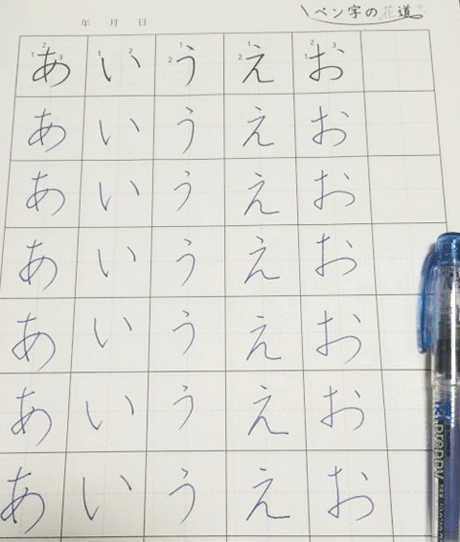 ペン字の花道
年 月 日
あ い う え お
あ い う え お
あ い う え お
あ い う え お
あ い う え お
あ い う え お
あ い う え お